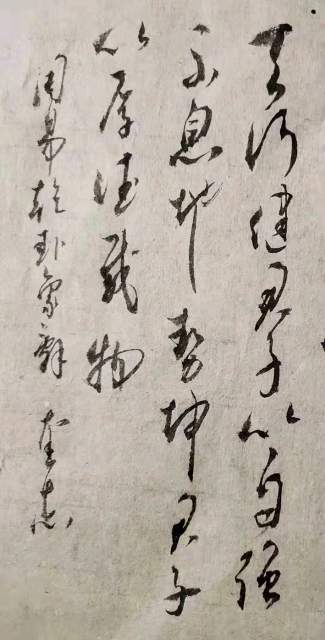 天行健君子以自强
不息地势坤君子
以厚德载物
周易乾卦象辞 奎志